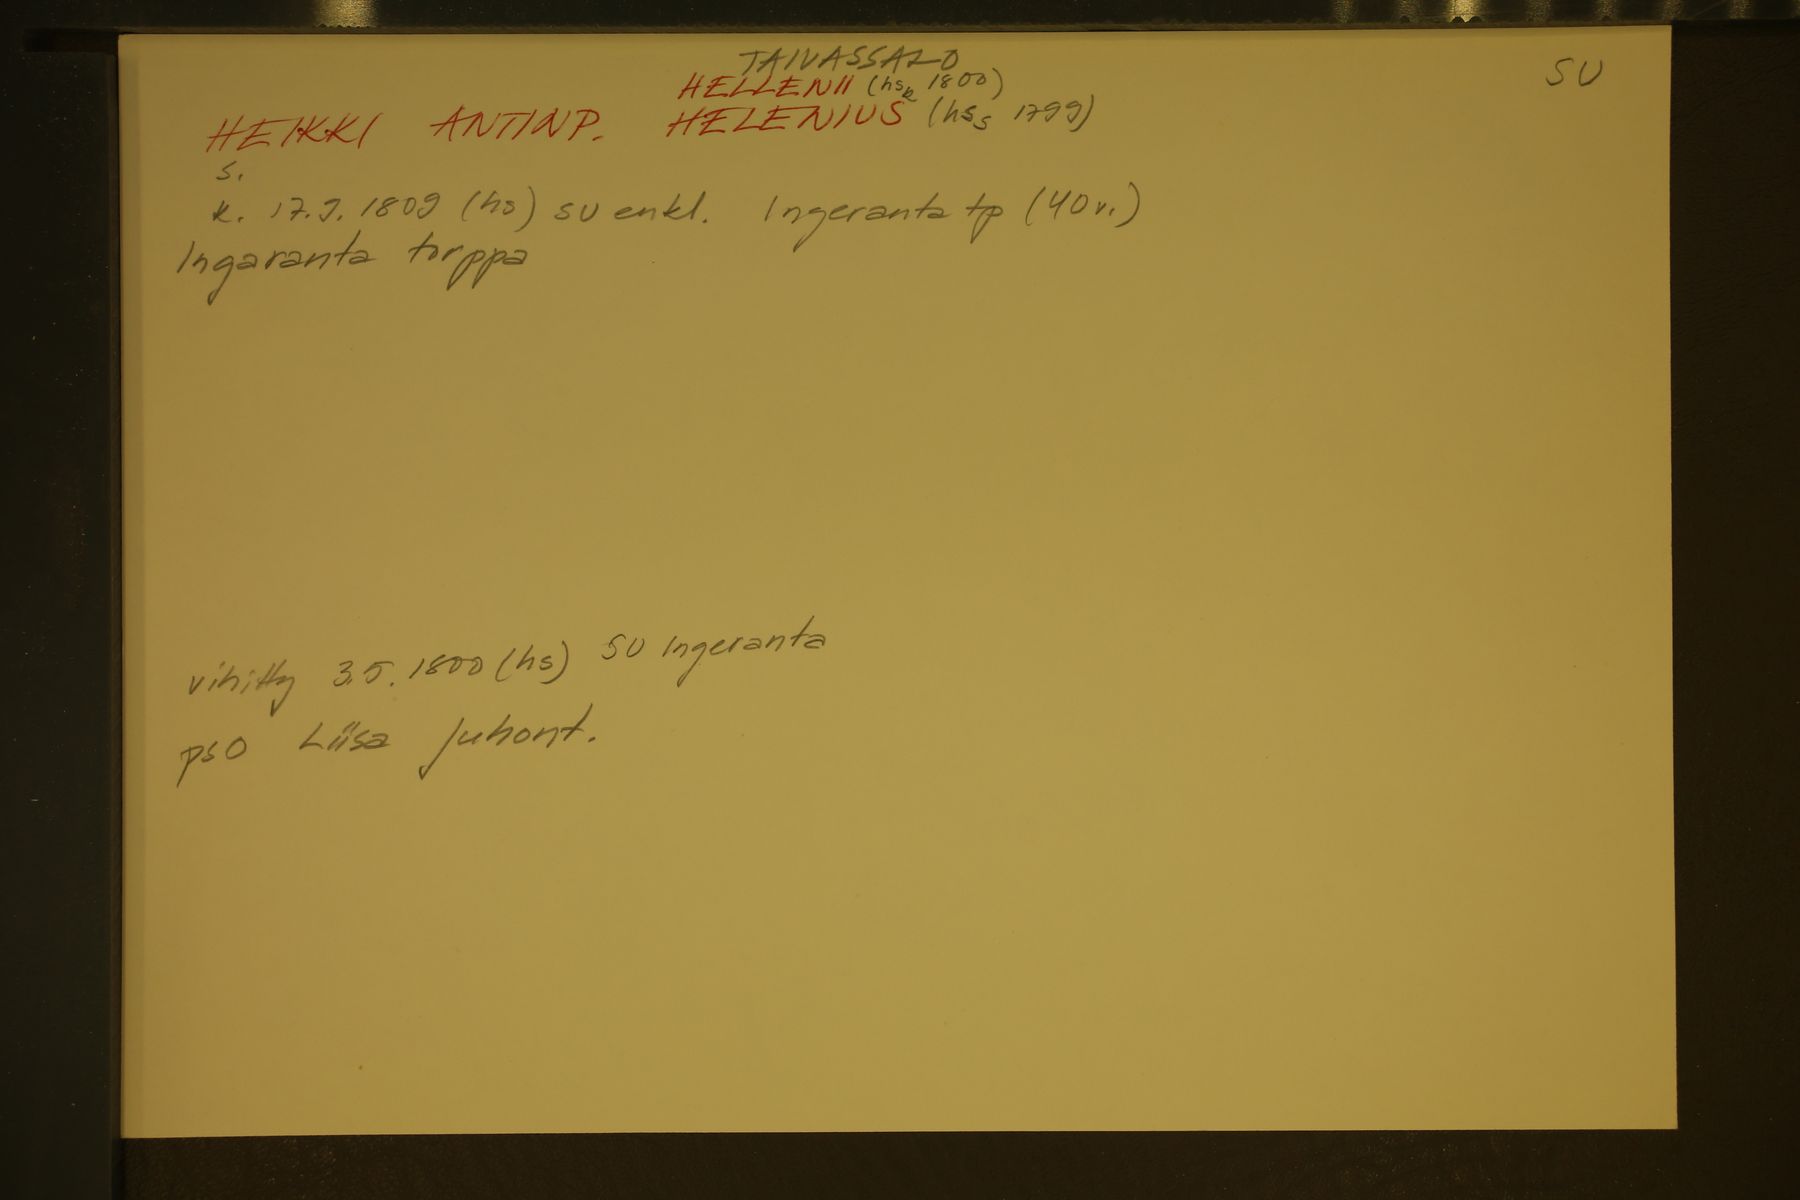 TAIVASSALO
SU
HELLENII (hsk 1800)
HEIKKI ANTINP. HELENIUS (hss 1799)
s.
k. 17.9.1809 (hs) SU enkl. Ingeranta tp (40 v.)
Ingaranta torppa
vihitty 3.5.1800 (hs) SU Ingeranta
pso Liisa Juhont.